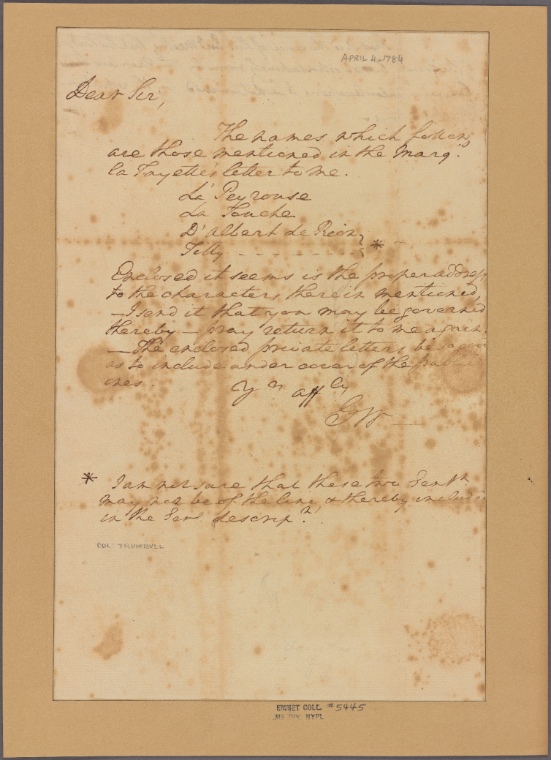 APRIL 4-1784
Dear Sir,
The names which follow,
are those mentioned in the Marqs.
la Fayette's letter to me.
La Peyrouse
La Touche
D'albert de Rion
Tilly - - - - - - - *
Enclosed it seems is the proper address
to the characters therein mentioned
—I send it that you may be governed
thereby—pray return it to me again.
—The enclosed private letters, be so good
as to include under cover of the pub
ones.
Yrs affly
GW—
* I am not sure that these two Gentn
may not be of the line & thereby
in the Genl descripn.
COL. TRUMBULL
EMMET COLL. #5445
MS DIV. NYPL